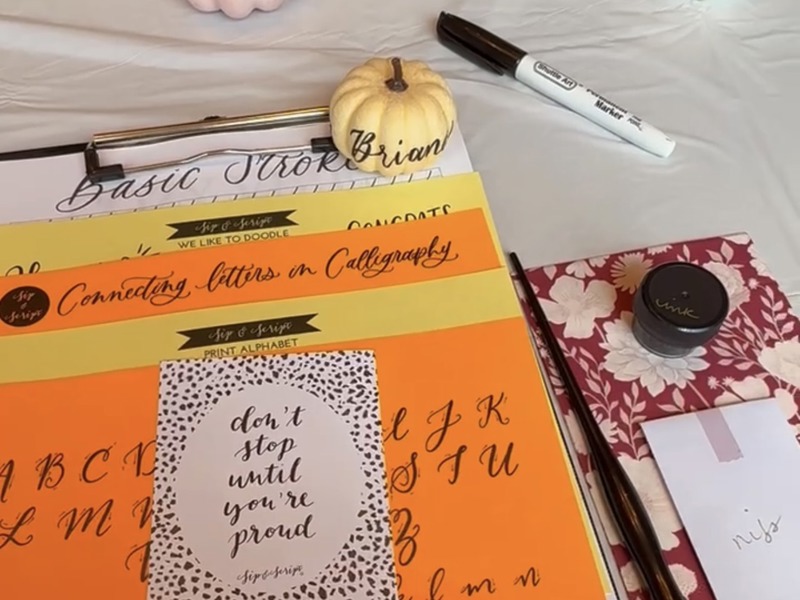 Shuttle Art
Permanent
Marker
Brian
Basic Stroke
Sip & Script
WE LIKE TO DOODLE
CONGRATS
Sip & Script
Connecting letters in Calligraphy
Sip & Script
PRINT ALPHABET
ink
don't
stop
until
you're
proud
Sip & Script
J K
A B C D
S T U
L M
Z
l m n
nibs